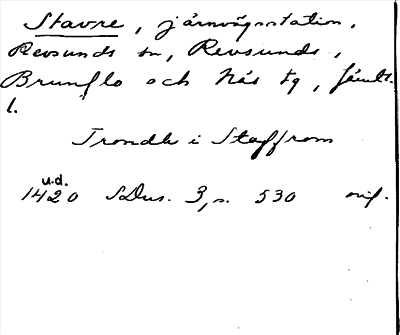 Stavre, järnvägsstation,
Revsunds sn, Revsunds,
Brunflo och Näs tg, Jämtl.
l.
Trondh i Staffrom
u.d.
1420 SDns. 3, s. 530 orig.